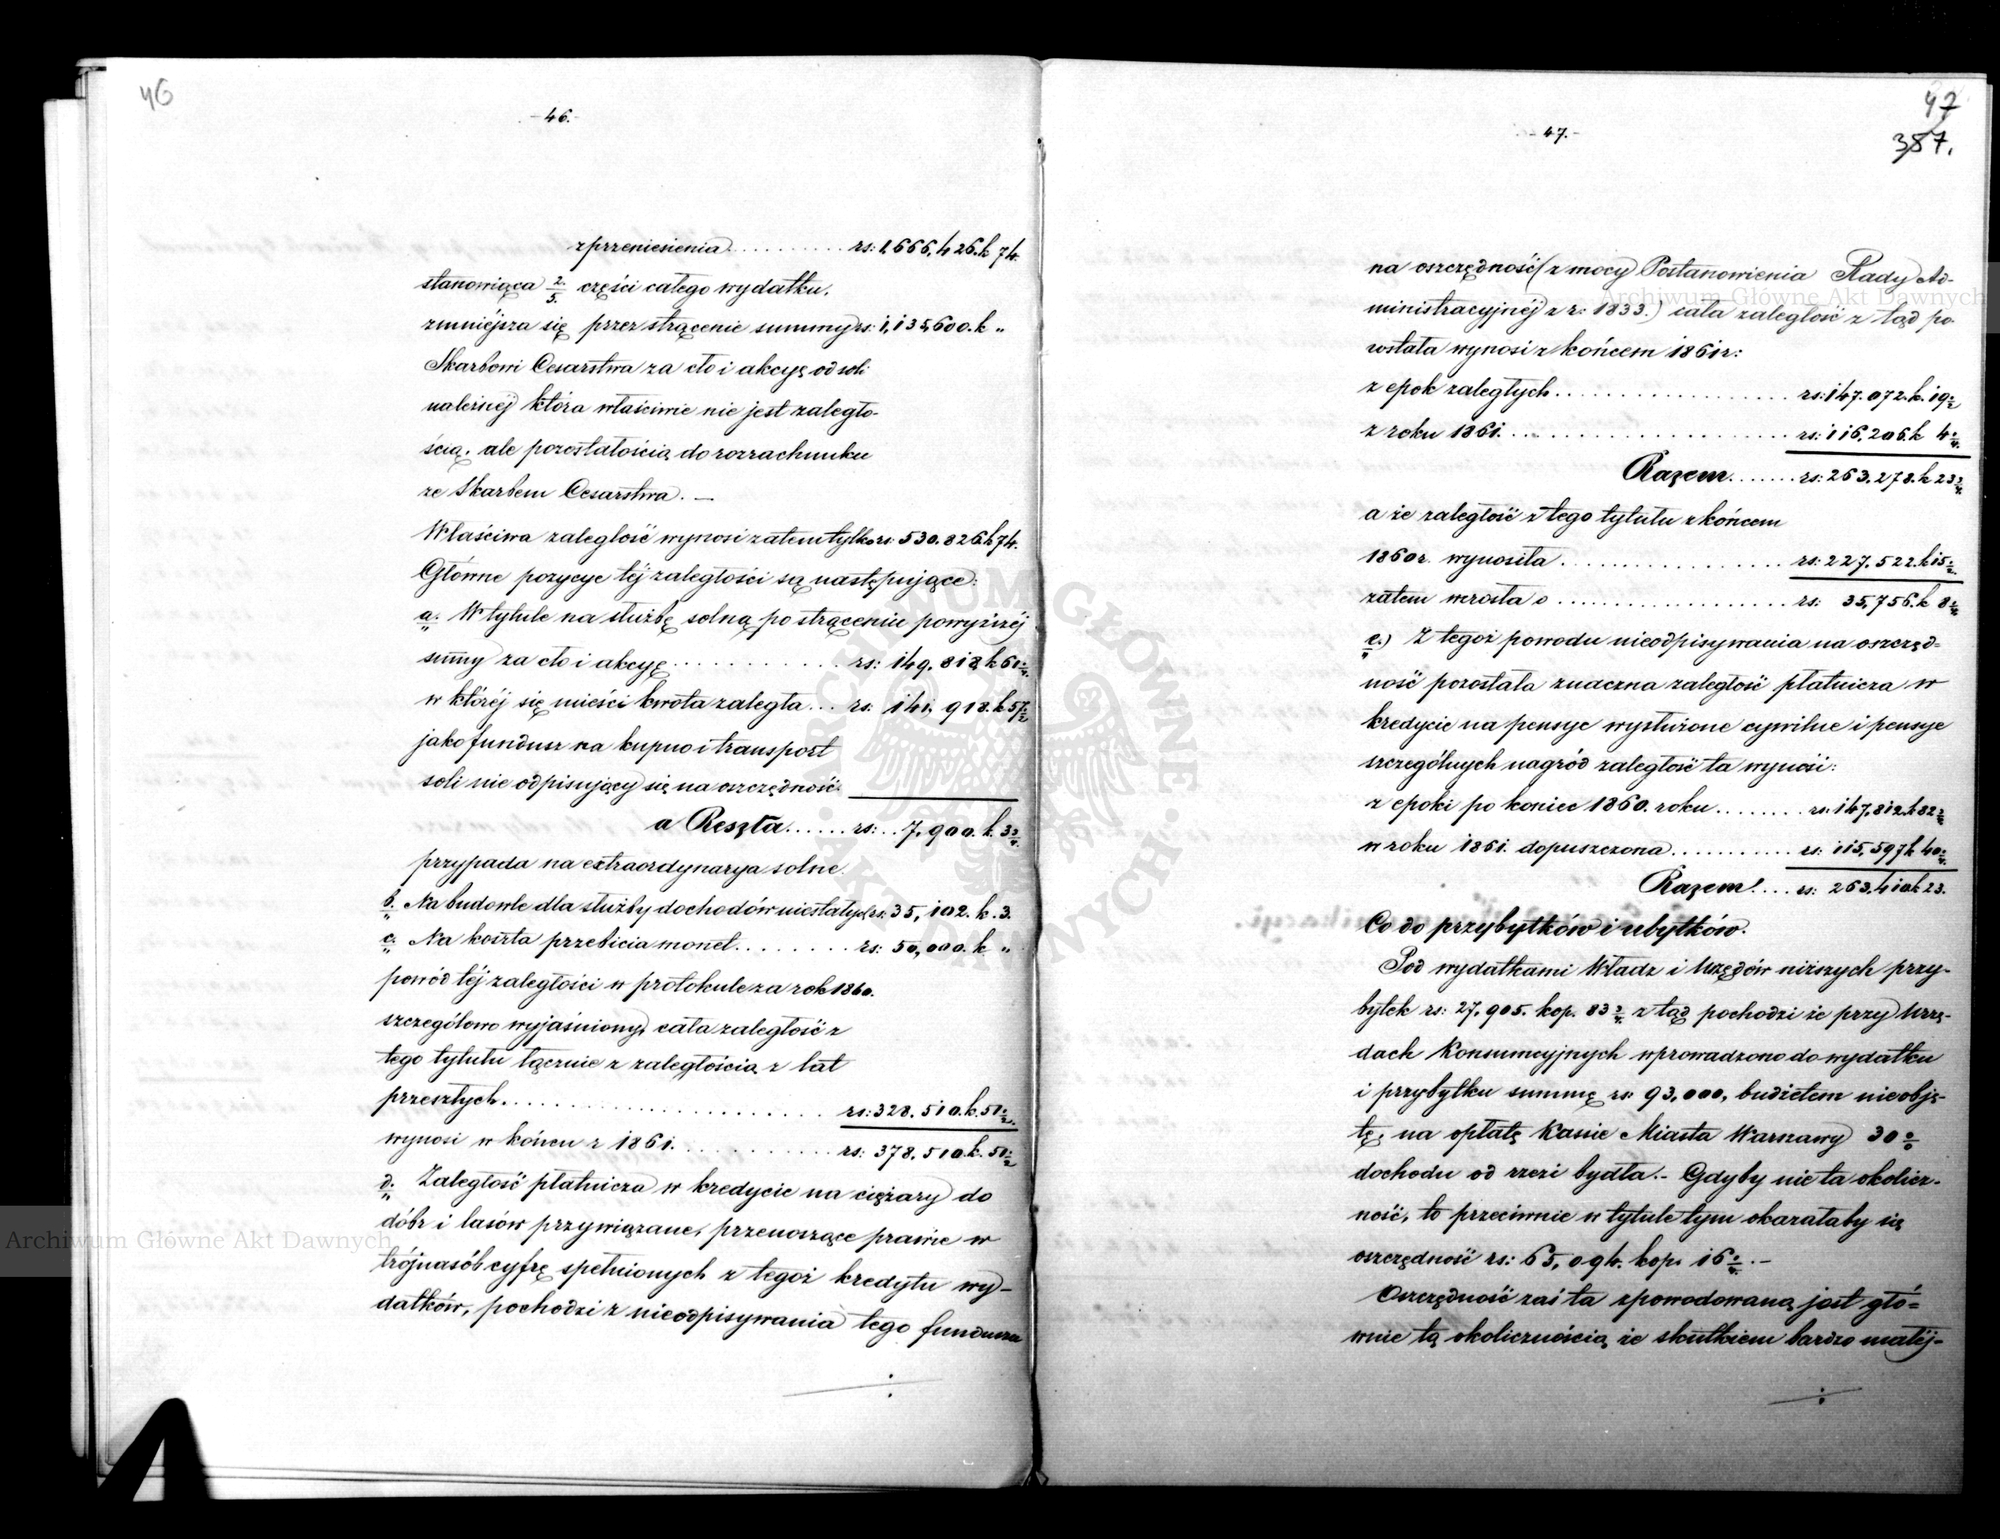 46
- 46. -
z przeniesienia . . . . . . . . . rs: 1,666,426. k 74.
stanowiąca 2/5. części całego wydatku.
zmniejsza się przez strącenie summy rs: 1,135,600. k „
Skarbowi Cesarstwa za cło i akcyę od soli
należnej która właściwie nie jest zaległo-
ścią, ale pozostałością do rozrachunku
ze Skarbem Cesarstwa. —
Właściwa zaległość wynosi zatem tylko rs: 530.826. k 74.
Główne pozycye téj zaległości są następujące:
a. W tytule na służbę solną po strąceniu powyższéj
summy za cło i akcyę . . . . . . . . . . . rs: 149.818. k 60
w któréj się mieści kwota zaległa . . . rs: 141,918. k 57
jako fundusz na kupno i transport
soli nie odpisujący się na oszczędność.
a Reszta . . . . . . rs: . . 7,900. k. 3
przypada na extraordynarya solne.
b. Na budowle dla służby dochodów niestałych rs: 35,102. k. 3.
c. Na koszta przebicia monet . . . . . . . . rs: 50,000. k „
powód téj zaległości w protokule za rok 1860.
szczegółowo wyjaśniony, cała zaległość z
tego tytułu łącznie z zaległością z lat
przeszłych . . . . . . . . . . . . . . . . . . . . rs: 328.510. k. 51
wynosi w końcu r 1861. . . . . . . . . . . . rs: 378.510. k. 51
d. Zaległość płatnicza w kredycie na ciężary do
dóbr i lasów przywiązane, przenoszące prawie w
trójnasób cyfrę spełnionych z tegoż kredytu wy-
datków, pochodzi z nieodpisywania tego funduszu
47
387.
- 47. -
na oszczędność (z mocy Postanowienia Rady Ad-
ministracyjnéj z r: 1833.) cała zaległość z tąd po-
wstała wynosi z końcem 1861 r:
z epok zaległych . . . . . . . . . . . . . . . . . rs: 147.072. k. 19
z roku 1861. . . . . . . . . . . . . . . . . . . . rs: 116,206. k 4
Razem . . . . . . . rs: 263.278. k 23
a że zaległość z tego tytułu z końcem
1860 r. wynosiła . . . . . . . . . . . . . . . . . rs: 227.522. k 15
zatem wzrosła o . . . . . . . . . . . . . . . . . rs: 35,756. k 8
e.) Z tegoż powodu nieodpisywania na oszczęd-
ność pozostała znaczna zaległość płatnicza w
kredycie na pensye wysłużone cywilne i pensye
szczególnych nagród zaległość ta wynosi:
z epoki po koniec 1860. roku . . . . . . . . rs: 147,812. k 82
w roku 1861. dopuszczona . . . . . . . . . . . rs: 115,597 k 40
Razem . . . . rs: 263,410 k 23.
Co do przybytków i ubytków.
Pod wydatkami Władz i Urzędów niższych przy-
bytek rs: 27.905. kop. 83 z tąd pochodzi że przy Urzę-
dach Konsumcyjnych wprowadzono do wydatku
i przybytku summę rs: 93,000, budżetem nieobję-
tę, na opłatę Kassie Miasta Warszawy 30 %
dochodu od rzezi bydła. – Gdyby nie ta okolicz-
ność, to przeciwnie w tytule tym okazałaby się
oszczędność rs: 65,094. kop. 16. –
Oszczędność zaś ta spowodowaną jest głó-
wnie tą okolicznością że skutkiem bardzo małéj-
Archiwum Główne Akt Dawnych
Archiwum Główne Akt Dawnych
ARCHIWUM GŁÓWNE AKT DAWNYCH